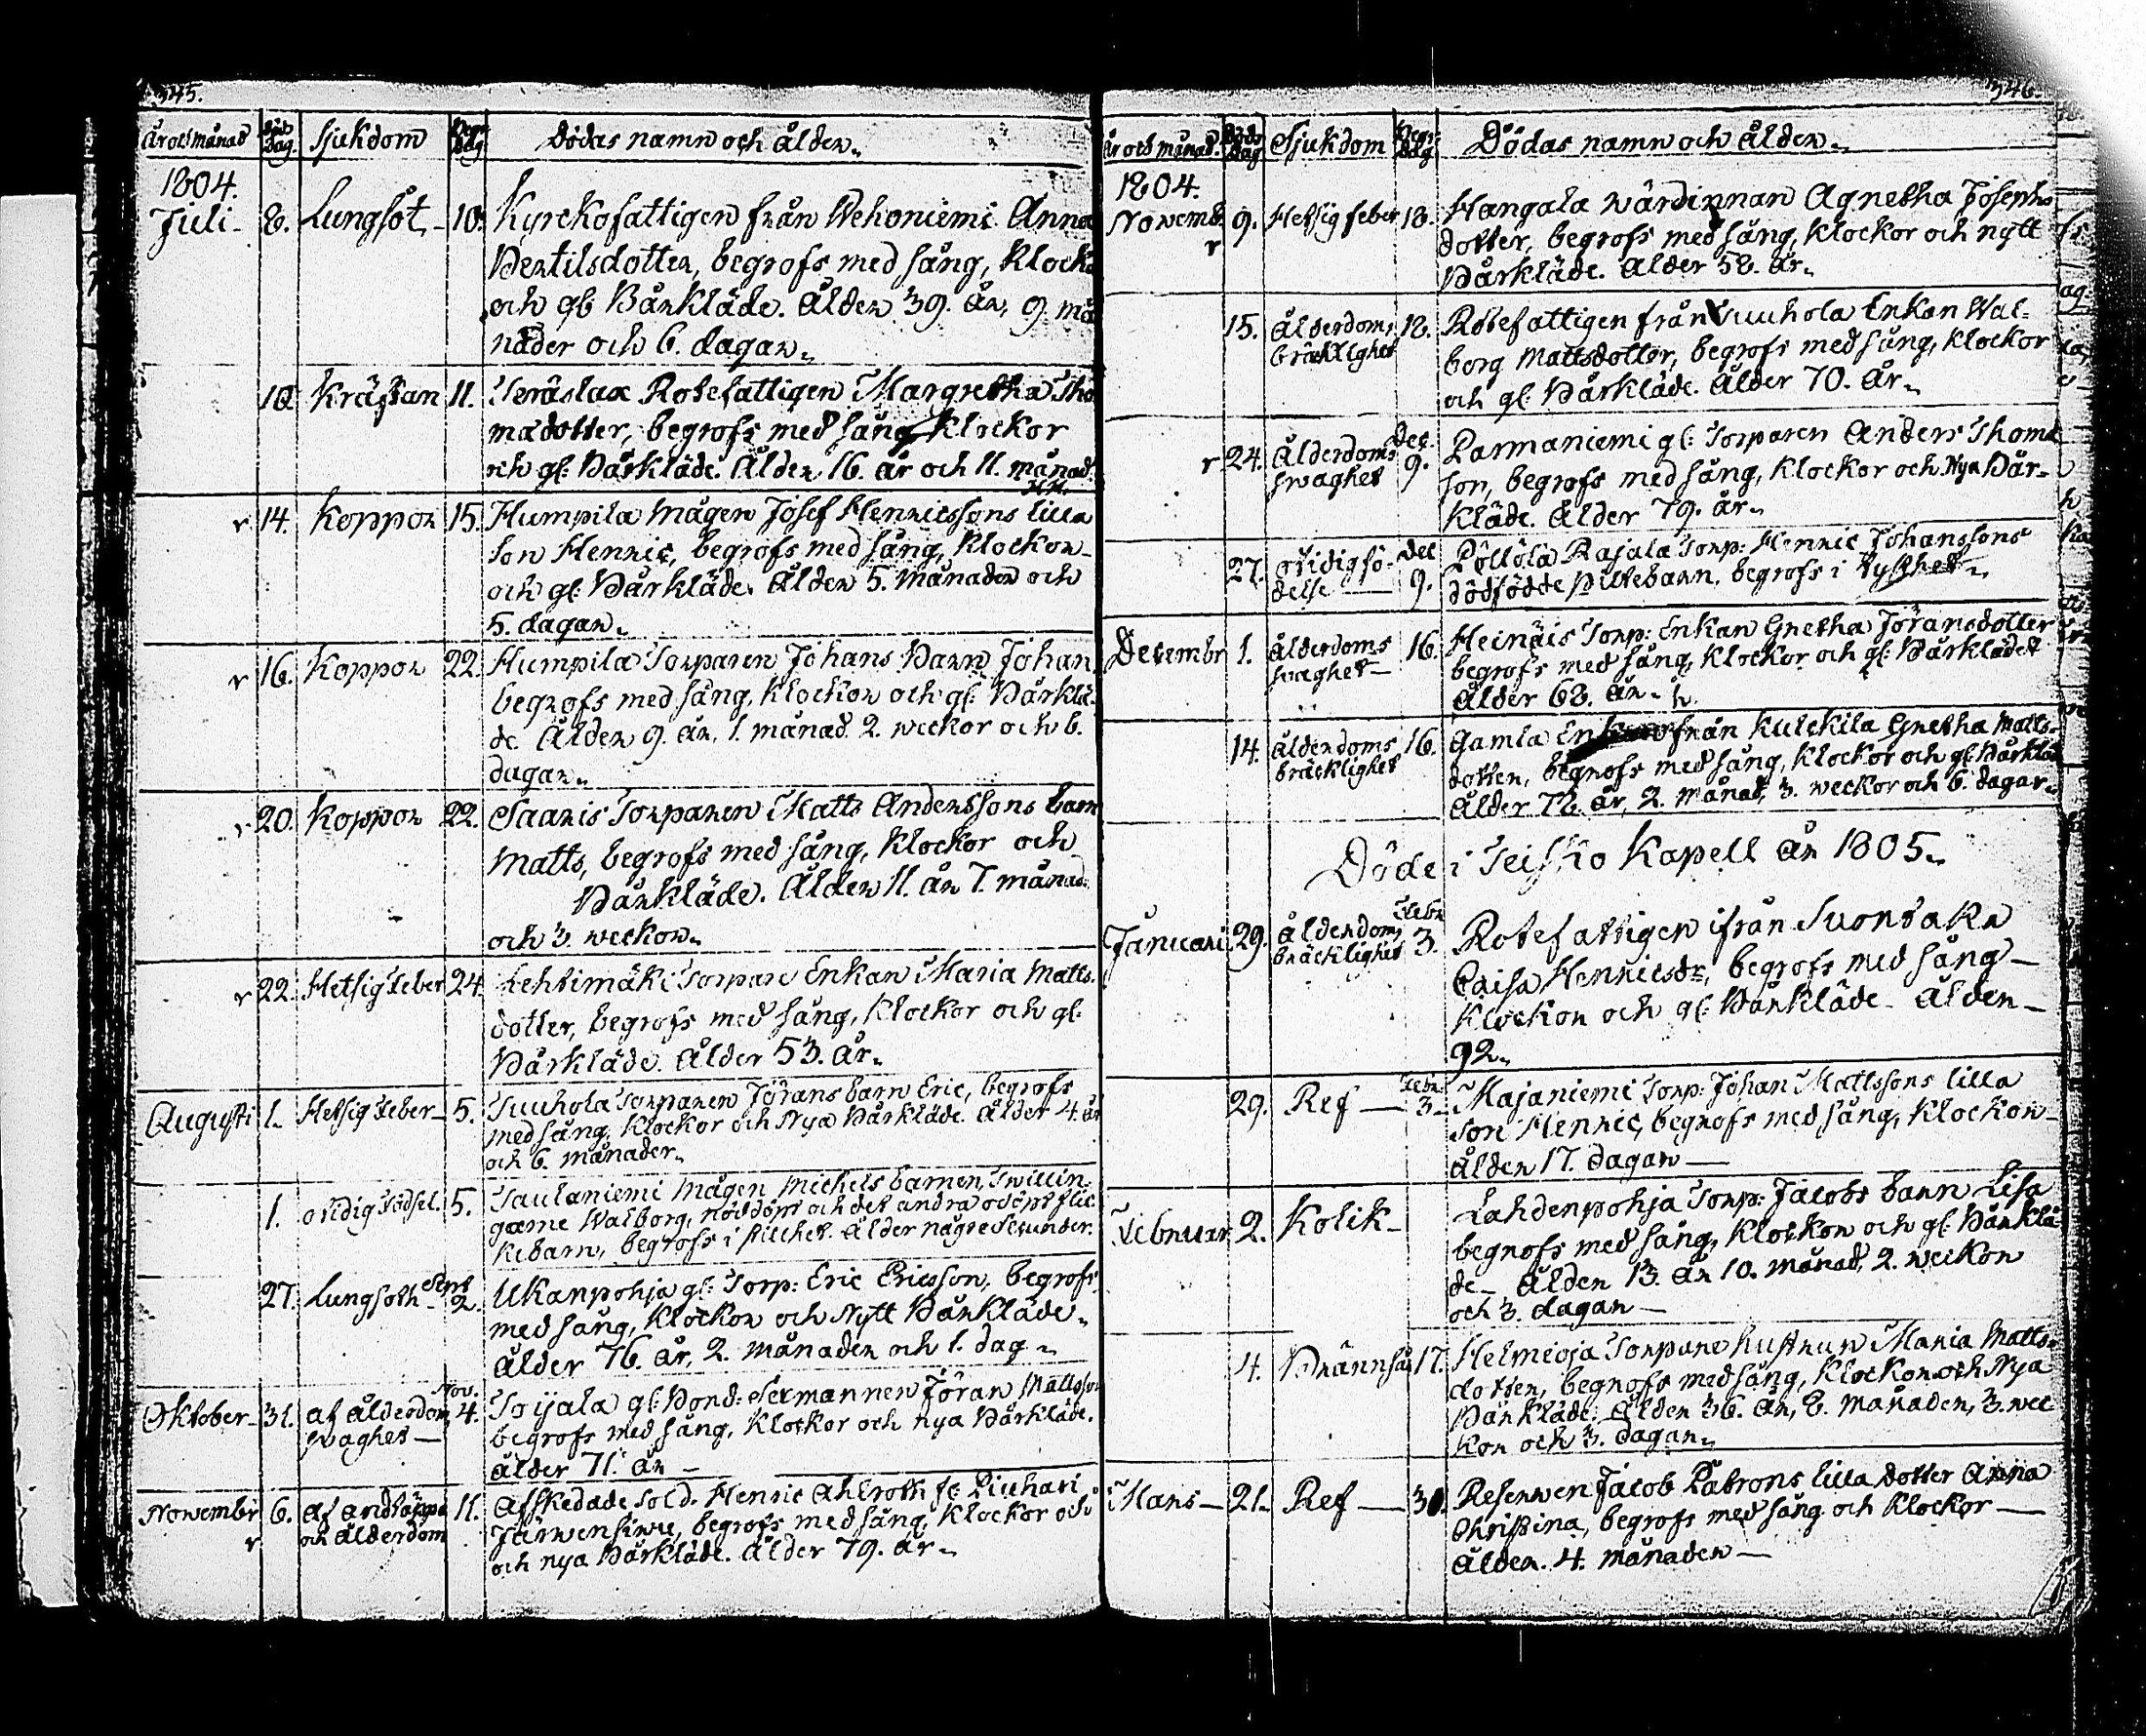 345.
År och månad Död Dag. Sjukdom Begr: Dag Dödas namn och ålder.
1804.
Juli 8. Lungsot 10. Kyrckofattigen från Wehoniemi Anna
Bertilsdotter, begrofs med sång, klock
och gl. Bårkläde. Ålder 39. år, 9. må
nader och 6. dagar.
10 Kräftan 11. Terâslax Rotefattigen Margretha Tho
madotter, begrofs med sång, klockor
och gl: Bårkläde. Ålder 16. år och 11. månad.
r 14. Koppor 15. Humpila Mågen Josef Henricssons lilla
son Henric, begrofs med sång, klockor
och gl: Bårkläde. Ålder 5. månader och
5. dagar.
r 16. Koppor 22. Humpila Torparen Johans Barn Johan
begrofs med sång, klockor och gl: Bårklä
de. Ålder 9. år, 1. månad 2. weckor och 6.
dagar.
r 20. Koppor 22. Saaris Torparen Matts Anderssons barn
Matts, begrofs med sång, klockor och
Bårkläde. Ålder 11. år 7. månad:
och 3. weckor.
r 22. Hetsig Feber 24. Lehtimäki Torpare Enkan Maria Matts
dotter, begrofs med sång, klockor och gl:
Bårkläde. Ålder 53. år.
Augusti 1. Hetsig Feber 5. Suuhola Torparen Jörans barn Eric, begrofs
med sång, klockor och Nya Bårkläde. Ålder 4. år
och 6. månader.
1. otidig Födsel. 5. Taulaniemi Mågen Michels barnen, Twillin-
garne Walborg, nöddöpt och det andra odöpt flic-
kebarn, begrofs i stillhet. Ålder några Secunder.
27. Lungsoth Sept 2. Ukanpohja gl: Torp: Eric Ericsson, begrofs
med sång, klockor och Nytt Bårkläde.
Ålder 76. år, 2. månader och 1. dag.
Oktober 31. af ålderdom Nov. 4. Toijala gl: Bond: Sexmannen Jöran Mattsson
swaghet begrofs med sång, klockor och nya Bårkläde.
Ålder 71. år
Novembr 6. Af andtäppa 11. Afskedade Sold. Henric Ahlroth fr: Liuhari
r och ålderdom Järwensiwu, begrofs med sång, klockor och
och nya Bårkläde. Ålder 79. år.
346.
År och månad. Död Dag Sjukdom Begr: Dag Dödas namn och ålder.
1804.
Novemb. 9. Hetsig feber 18. Hangala wärdinnan Agnetha Josephs
r dotter, begrofs med sång, klockor och nytt
Bårkläde. Ålder 58. år.
15. Ålderdoms 18. Rotefattigen från Suuhola Enkan Wal-
bräcklighet borg Mattsdotter, begrofs med sång, klockor
och gl: Bårkläde. Ålder 70. år.
r 24. Ålderdoms Dec. 9. Parmaniemi gl: Torparen Anders Thoma
swaghet son, begrofs med sång, klockor och Nya Bår-
kläde. Ålder 79. år.
27. otidig fö- Dec 9. Pöllölä Rajala Torp: Henric Johanssons
delse dödfödde Piltebarn, begrofs i tysthet.
Decembr 1. Ålderdoms 16. Heinäis Torp: Enkan Gretha Jöransdotter
swaghet begrofs med sång, klockor och gl: Bårklädet
Ålder 68. år.
14. Ålderdoms 16. Gamla Enkan från Kulckila Gretha Matts-
bräcklighet dotter, begrofs med sång, klockor och gl: Bårkläd
Ålder 78. år, 2. månad, 3. weckor och 6. dagar.
Döde i Teisko Kapell år 1805.
Januari 29. Ålderdoms Febr 3. Rotefattigen ifrån Suontaka
bräcklighet Caisa Henricsdr, begrofs med sång
klockor och gl: Bårkläde Ålder
92.
29. Ref Febr. 3 Majaniemi Torp: Johan Mattssons lilla
son Henric, begrofs med sång, klockor
Ålder 17. dagar
Februar 2. Kolik Lahdenpohja Torp: Jacobs barn Lisa
begrofs med sång, klockor och gl: Bårklä-
de Ålder 13. år 10. månad, 2. weckor
och 3. dagar
4. Brännsår 17. Helmioja Torpare hustrun Maria Matts-
dotter, begrofs med sång, klockor och Nya
Bårkläde. Ålder 36. år, 8. månader, 3. wec-
kor och 3. dagar.
Mars 21. Ref 30. Reserwen Jacob Patrons lilla dotter Anna
Christina, begrofs med sång och klockor
Ålder. 4. månader